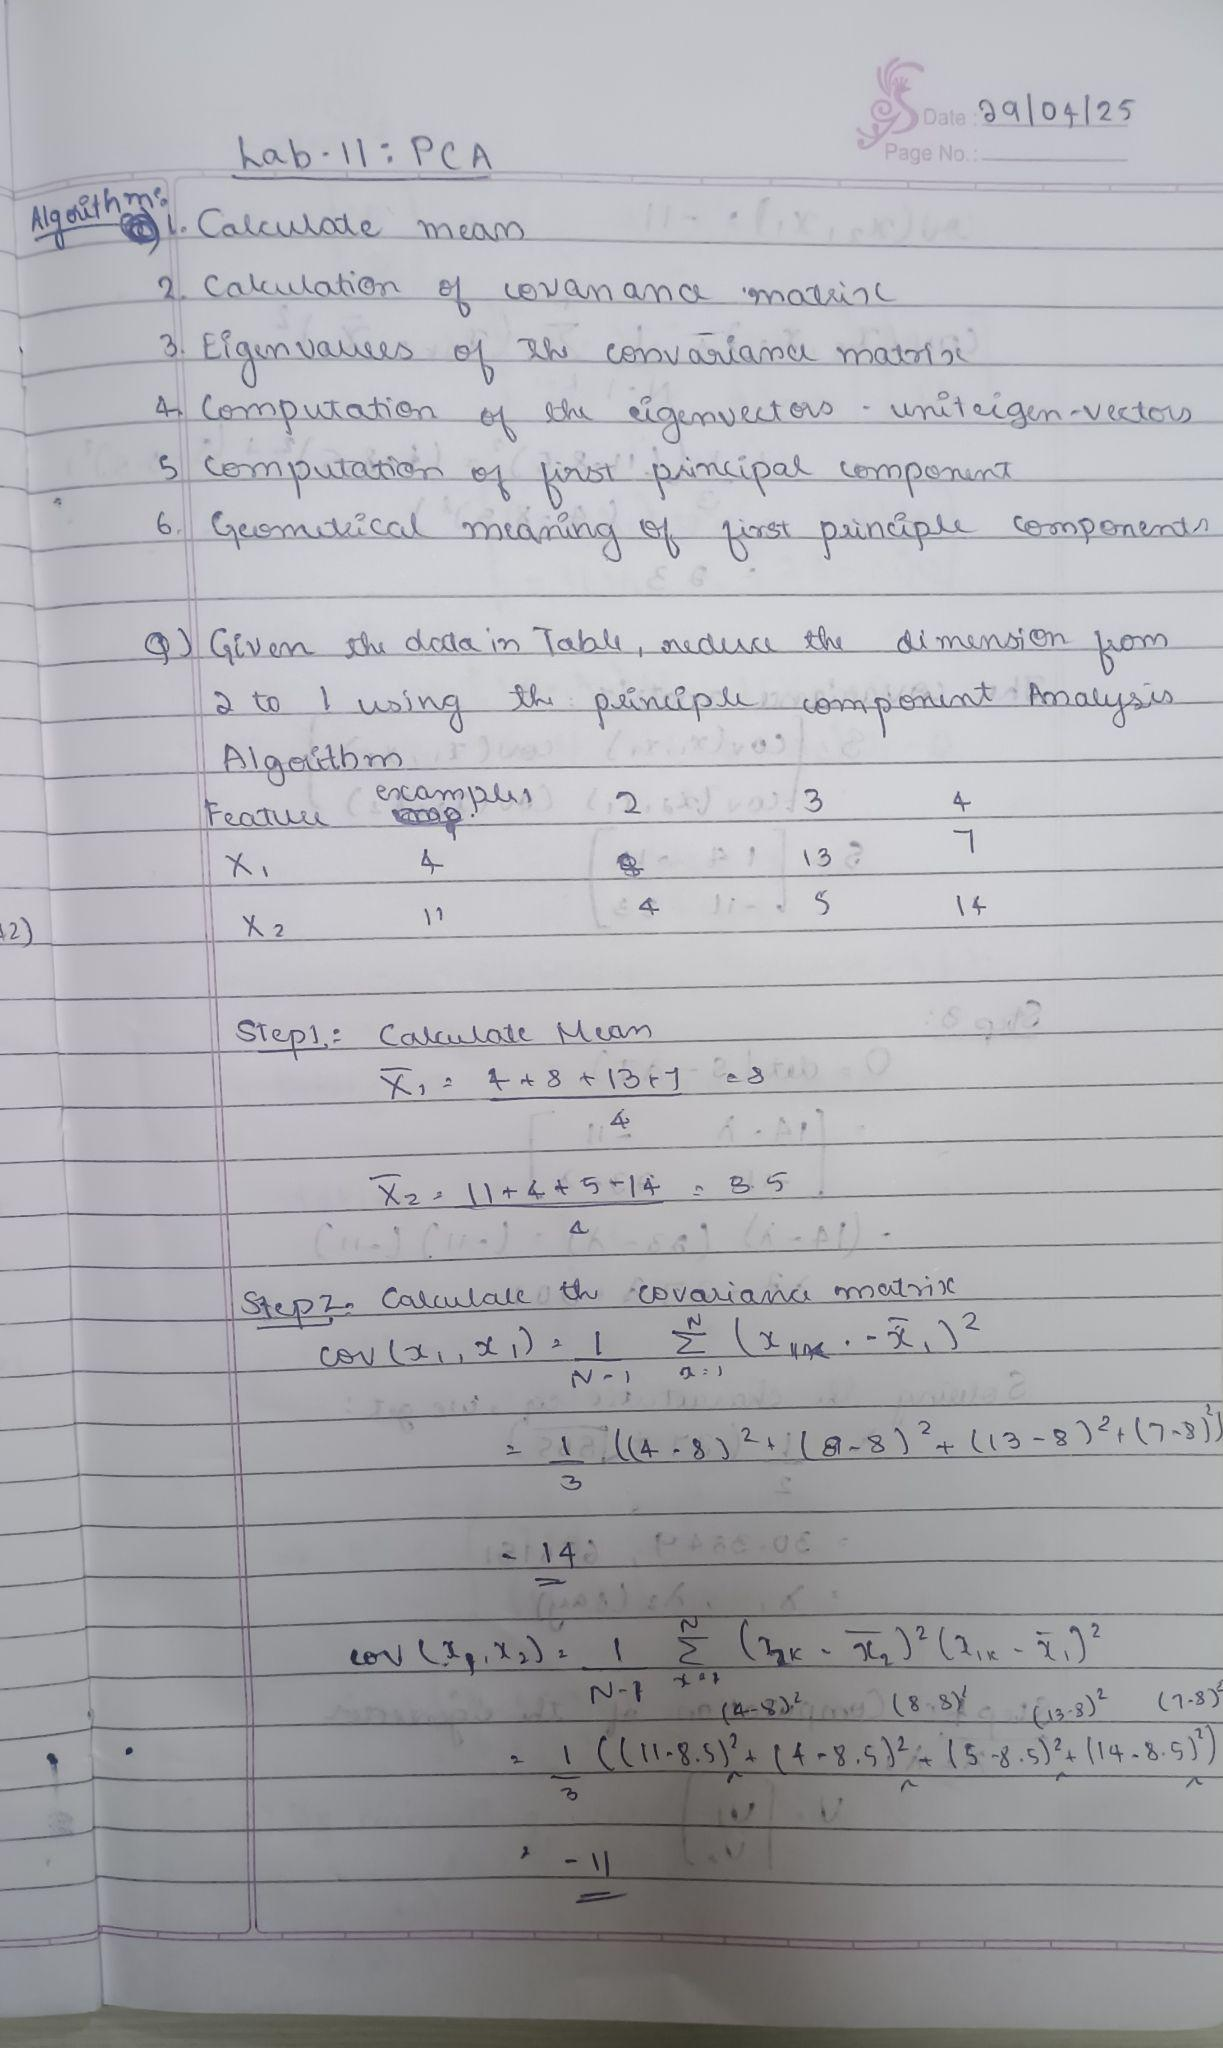 Date: 29/04/25
Page No.:
Lab-11: PCA
Algorithm:
1. Calculate mean
2. Calculation of covariance matrix
3. Eigenvalues of the convariance matrix
4. Computation of the eigenvectors - unit eigen-vectors
5 Computation of first principal component
6. Geometrical meaning of first principle components
Q) Given the data in Table, reduce the dimension from
2 to 1 using the principle component Analysis
Algorithm
Feature examples 2 3 4
X₁ 4 8 13 7
X₂ 11 4 5 14
Step1.: Calculate Mean
X̄₁ = 4 + 8 + 13 + 7 = 8
4
X̄₂ = 11 + 4 + 5 + 14 = 8.5
4
Step2. Calculate the covariance matrix
cov(x₁, x₁) = 1/N-1 Σ (x₁ₖ - x̄₁)²
= 1/3 ((4-8)² + (8-8)² + (13-8)² + (7-8)²)
= 14
cov(x₁, x₂) = 1/N-1 Σ (x₂ₖ - x̄₂)² (x₁ₖ - x̄₁)²
(4-8)² (8-8)² (13-8)² (7-8)²
= 1/3 ((11-8.5)² + (4-8.5)² + (5-8.5)² + (14-8.5)²)
= -11